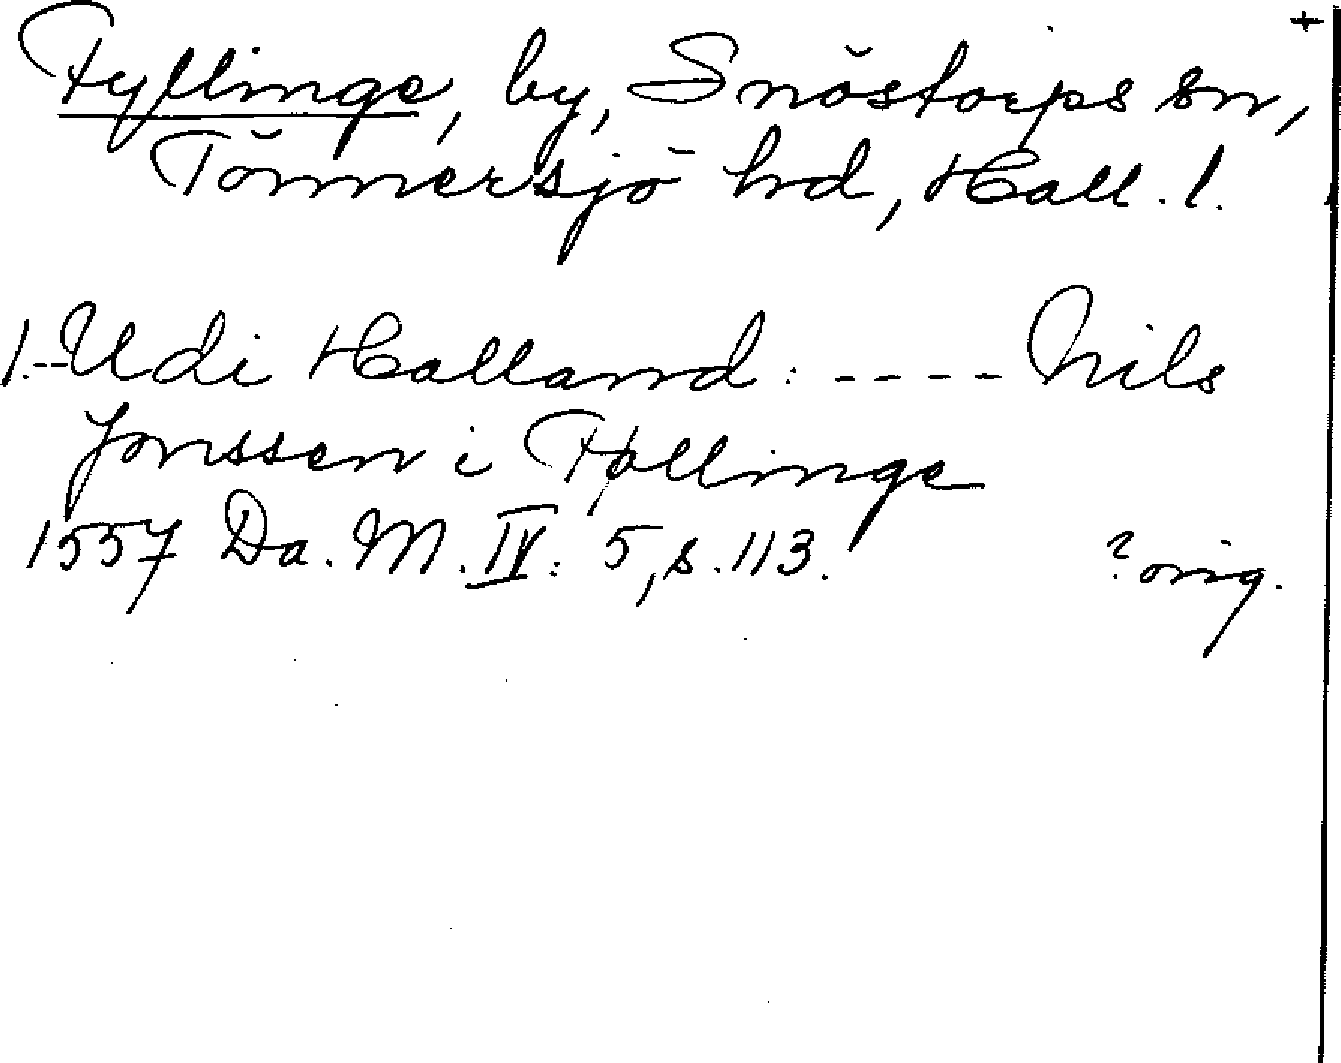 +
Fyllinge, by, Snöstorps sn,
Tönnersjö hd, Hall. l.
1.--Udi Halland: ---- Nils
Jonssen i Føllinge
1557 Da. M. IV: 5, s. 113. ? orig.